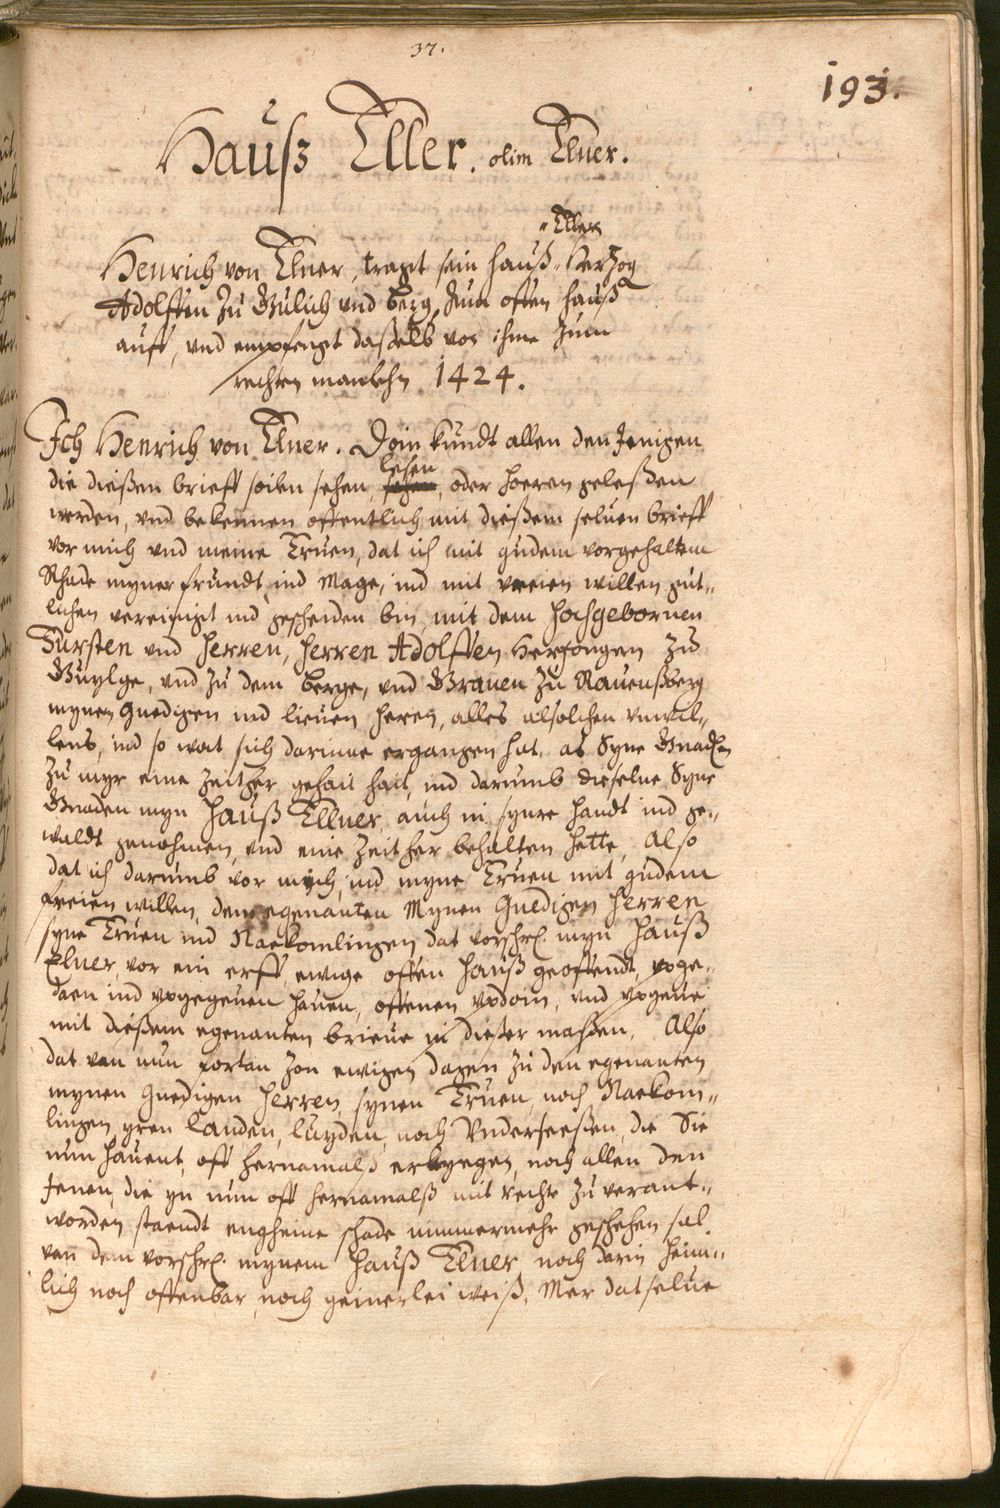 37.
193.
Hauß Eller. olim Elner.
Eller
Henrich von Elner, tragt sein hauß Hertzog
Adolffen zu Gulich und Berg, zum offen hauß
auff, und empfengt daßelb vor ihme zum
rechten manlehn 1424.
Ich Henrich von Elner. Doin kundt allen den Jenigen
die dießen brieff soilen sehen, lesen, oder hoeren geleßen
werden, und bekennen offentlich mit dießem seluen brieff
vor mich und meine Eruen, dat ich mit gudem vorgehaltem
Rhade myner frundt ind Mage, ind mit vreien willen gut-
lichen vereinigt ind gescheiden bin, mit dem hochgebornen
Fursten und Herren, Herren Adolffen Hertzongen zu
Guylge, und zu dem Berge, und Grauen zu Rauenßberg
mynen Gnedigen ind lieuen heren, alles alsolchen unwil-
lens, ind so wat sich darinne ergangen hat, as Syne Gnaden
zu myr eine zeither gehait hait, ind darumb dieselue Syne
Gnaden myn Hauß Ellner, auch in synre handt ind ge-
waldt genohmen, und eine zeither behalten hette, Also
dat ich darumb vor mich, ind myne Eruen mit gudem
freien willen, dem egenanten Mynen Gnedigen Herren
syne Eruen ind Naekomlingen dat vorschr. myn Hauß
Elner, vor ein erff, ewige offen hauß geoffendt, upge-
daen ind upgegeuen hauen, offenen updoin, und upgeue
mit dießem egenanten brieue in dießer maßen, Also
dat van nun fortan zon ewigen dagen zu den egenanten
mynen Gnedigen Herren, synen Eruen, noch Naekom-
lingen, yren Landen, luyden, noch Underseeßen, die Sie
nun hauent, off hernamalß erkrygen, noch allen den
Jenen, die yn nun off hernamalß mit rechte zu verant-
worden staendt engheine schade nimmermehr geschehen sal
van dem vorschr. mynem Hauß Elner, noch darin heim-
lich noch offenbar, noch geinerlei weiß, Mer dat selue